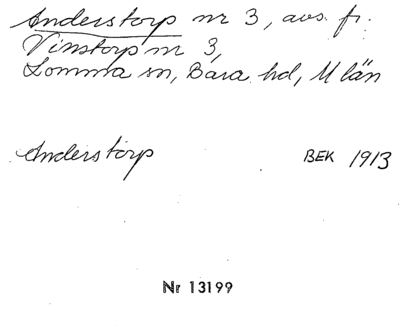 Anderstorp nr 3, avs. fr.
Vinstorp nr 3,
Lomma sn, Bara hd, M län
Anderstorp BEK 1913
Nr 13199